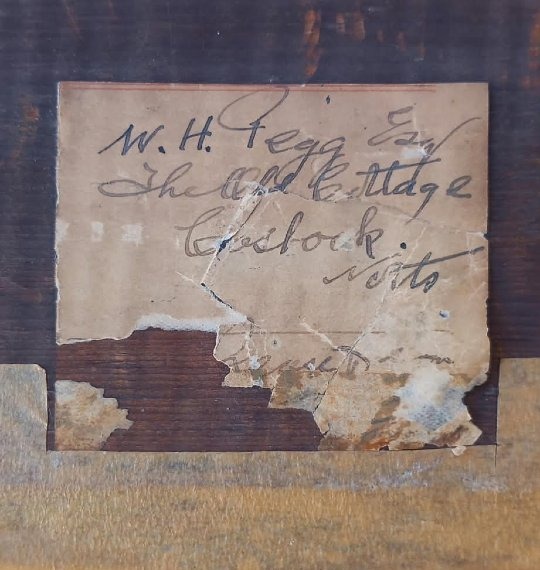 W. H. Pegg Esq
The Old Cottage
Costock
Notts